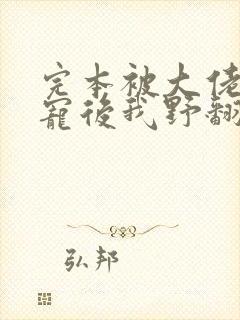 完本被大佬
寵後我野翻
弘邦